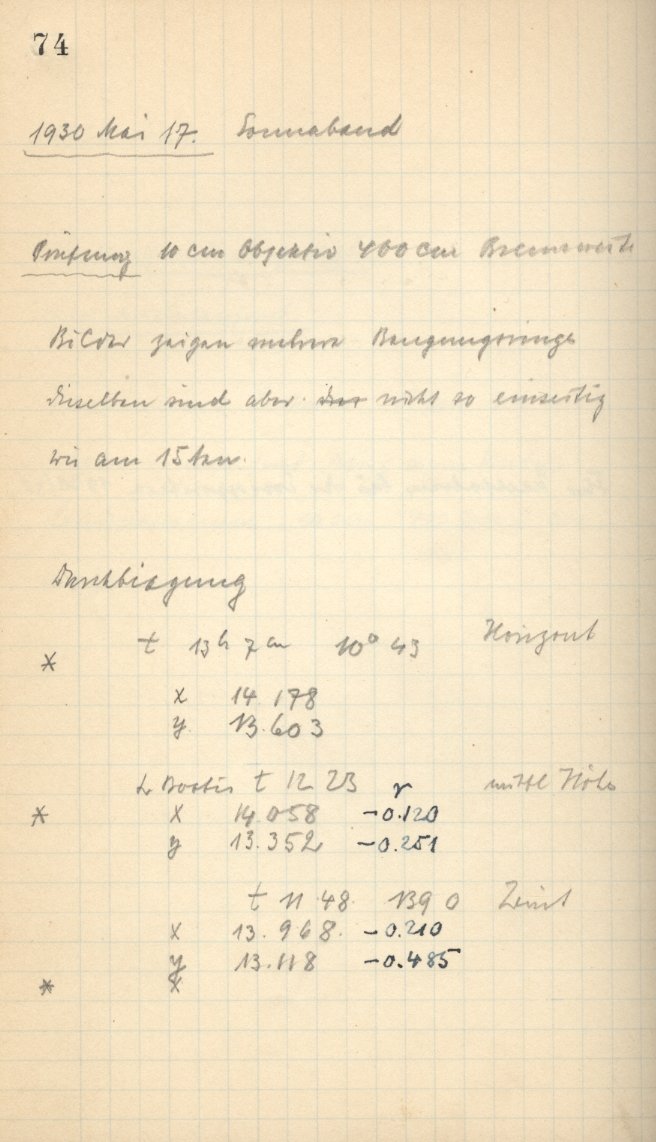 74
1930 Mai 17. Sonnabend
Prüfung 10 cm Objektiv 400 cm Brennweite
Bilder zeigen mehrere Beugungsringe
dieselben sind aber nicht so einseitig
wie am 15ten.
Durchbiegung
t 13h 7m 10° 43 Horizont
*
x 14 178
y 13.603
Bootis t 12 23 r mittl Höhe
* x 14.058 -0.120
y 13.352 -0.251
t 11 48 139 0 Zenit
x 13.968. -0.210
y 13.118 -0.485
* x